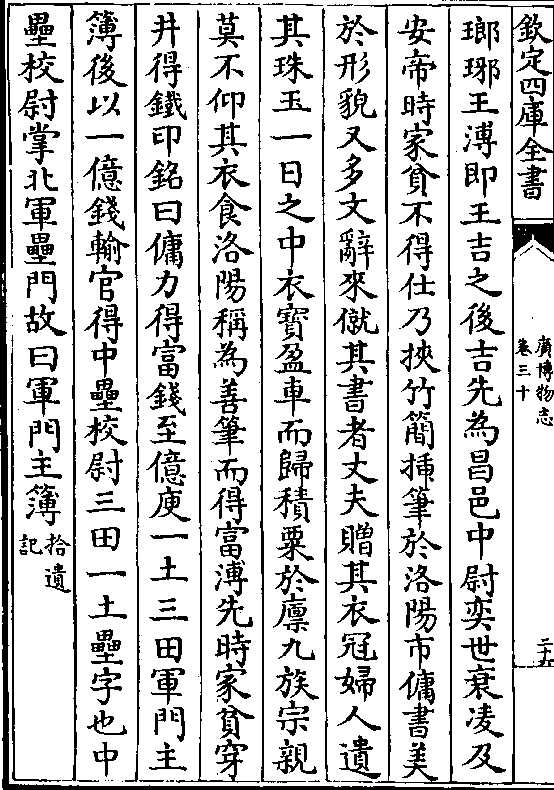 欽定四庫全書
廣博物志
卷三十
二十六
瑯琊王溥即王吉之後吉先為昌邑中尉奕世衰凌及
安帝時家貧不得仕乃挾竹簡揷筆於洛陽市傭書美
於形貌又多文辭來僦其書者丈夫贈其衣冠婦人遺
其珠玉一日之中衣寳盈車而歸積粟於廪九族宗親
莫不仰其衣食洛陽稱為善筆而得富溥先時家貧穿
井得鐵印銘曰傭力得富錢至億庾一土三田軍門主
簿後以一億錢輸官得中壘校尉三田一土壘字也中
壘校尉掌北軍壘門故曰軍門主簿拾遺
記